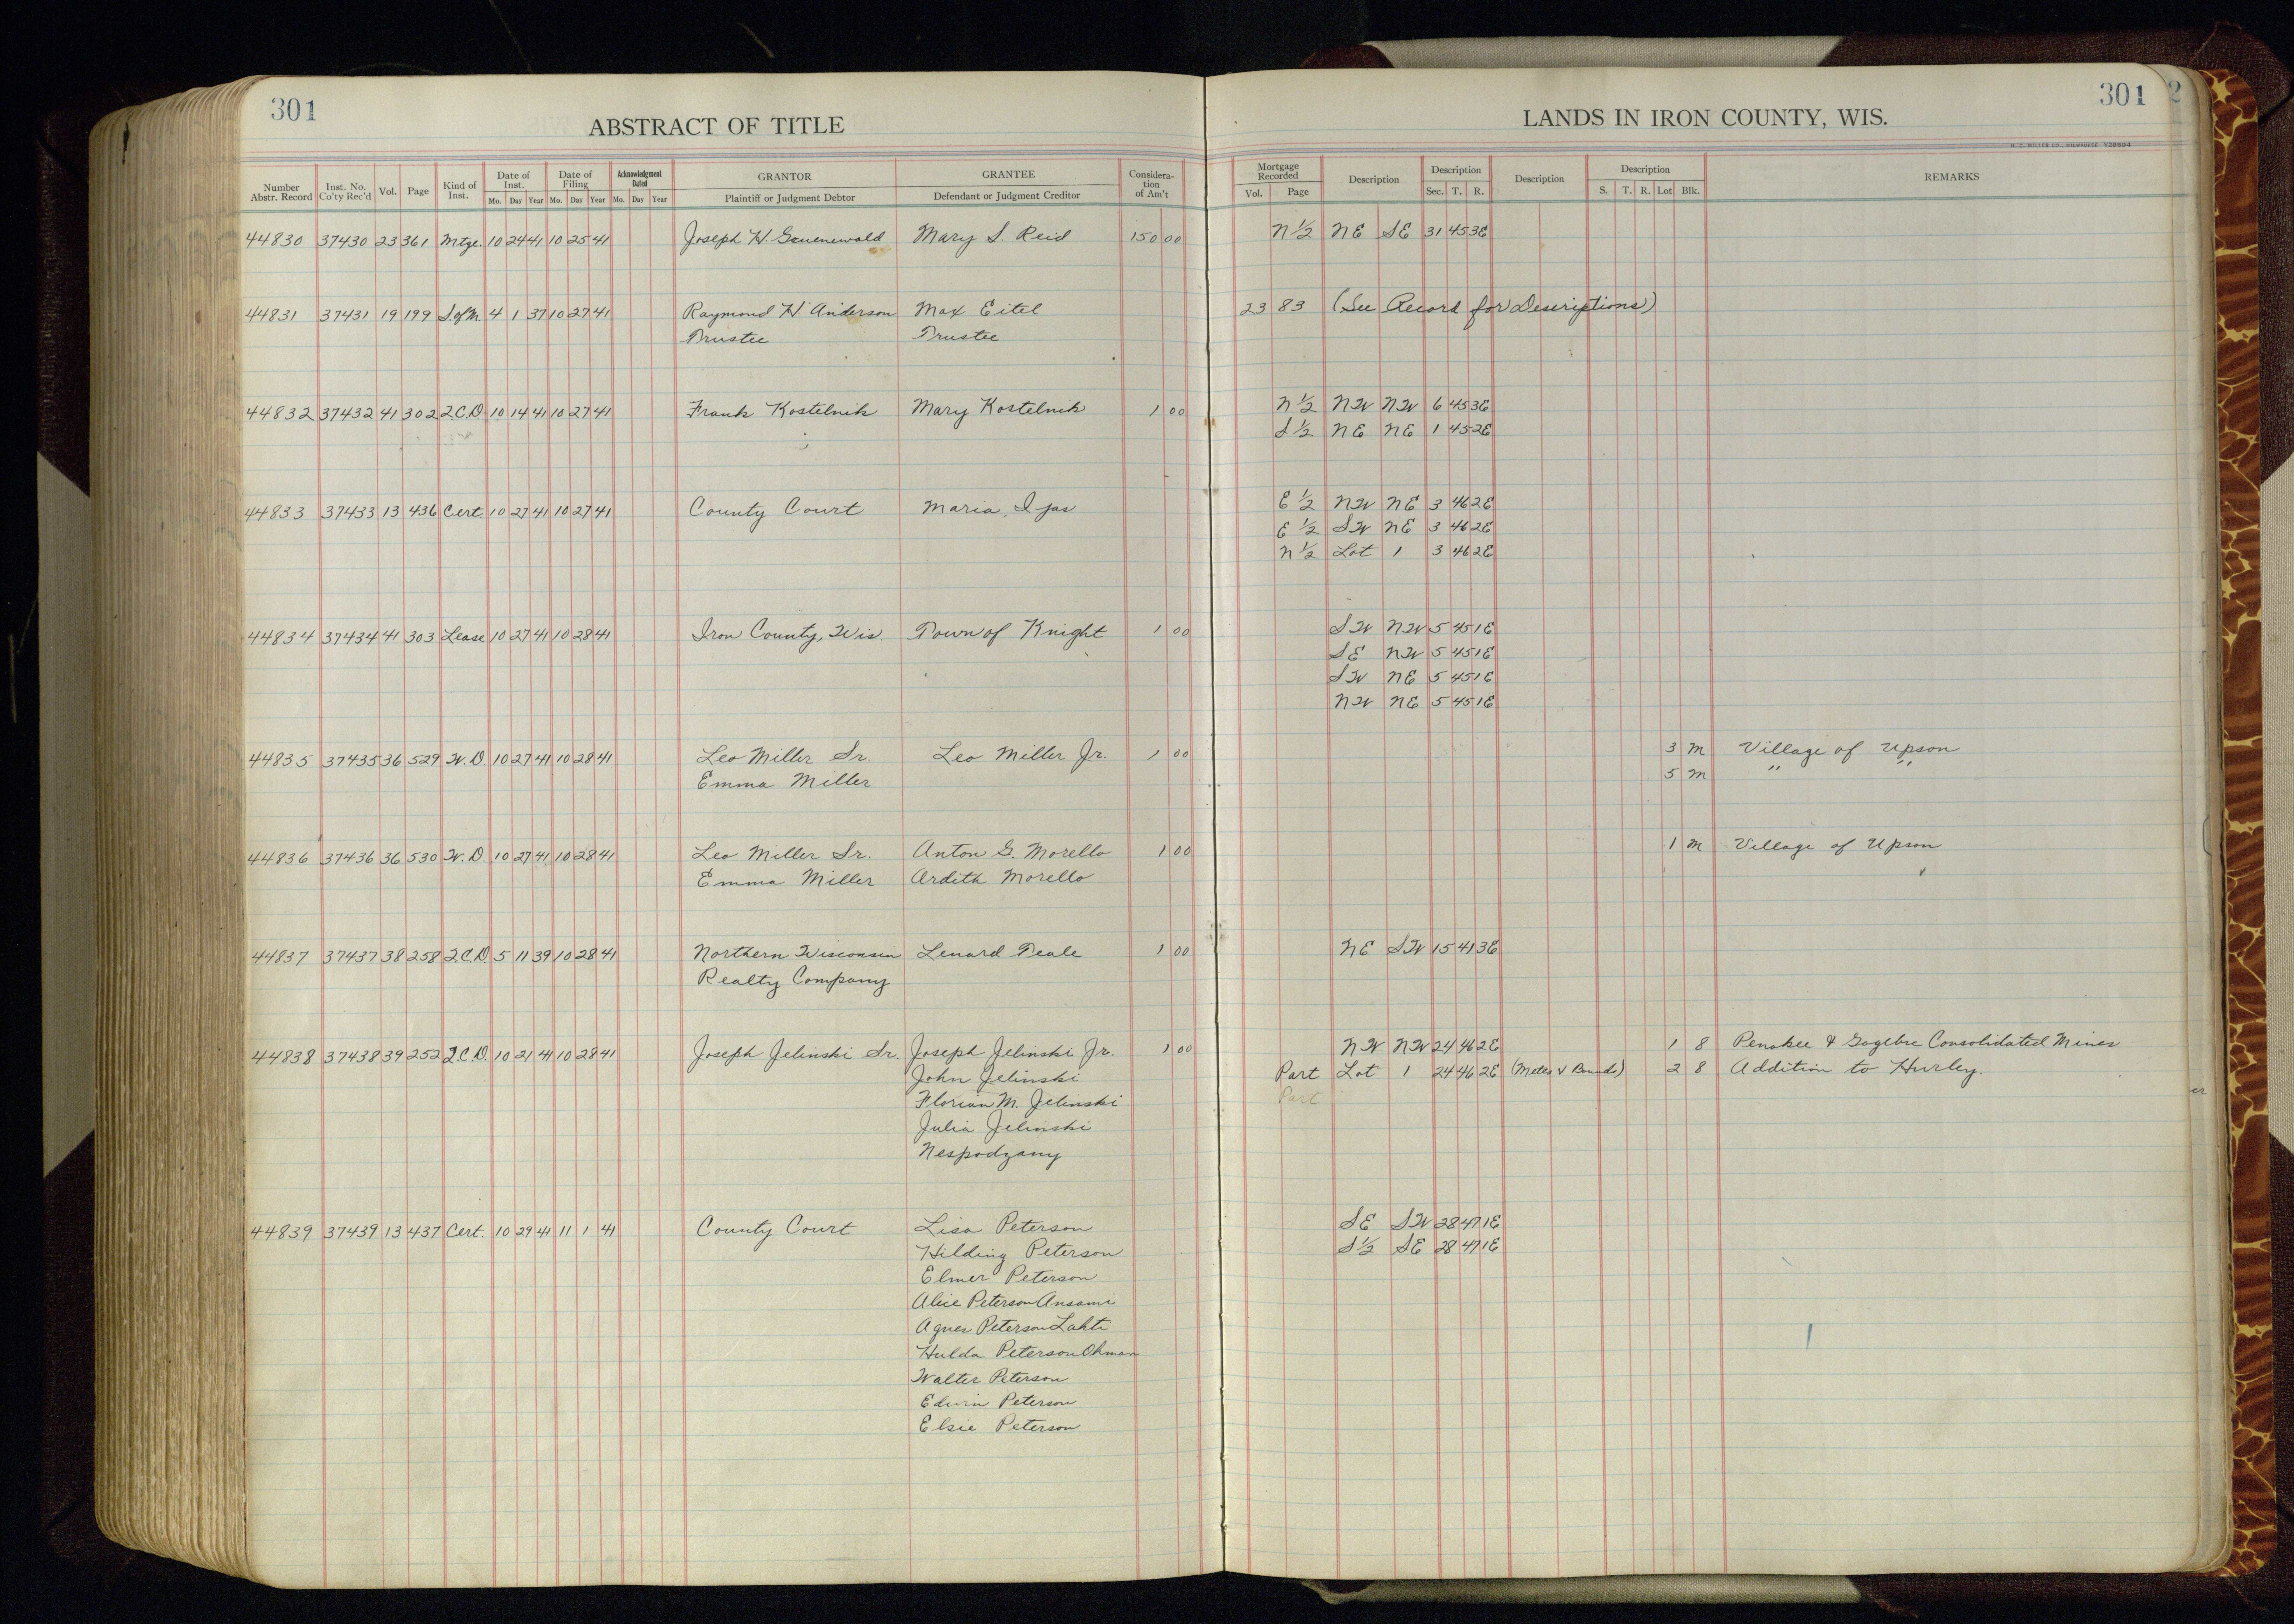 301
ABSTRACT OF TITLE
Number Abstr. Record Inst. No. Co'ty Rec'd Vol. Page Kind of Inst. Date of Inst. Mo. Day Year Date of Filing Mo. Day Year Acknowledgment Dated Mo. Day Year GRANTOR Plaintiff or Judgment Debtor GRANTEE Defendant or Judgment Creditor Considera-tion of Am't
301
LANDS IN IRON COUNTY, WIS.
H. C. MILLER CO., MILWAUKEE
Mortgage Recorded Vol. Page Description Description Sec. T. R. Description Description S. T. R. Lot Blk. REMARKS
44830 37430 23 361 Mtge. 10 24 41 10 25 41 Joseph H. Gruenewald Mary S. Reid 150 00 N 1/2 NE SE 31 45 3E
44831 37431 19 199 S.of M. 4 1 37 10 27 41 Raymond H. Anderson Max Eitel 23 83 (See Record for Descriptions)
Trustee Trustee
44832 37432 41 302 Q.C.D. 10 14 41 10 27 41 Frank Kostelnik Mary Kostelnik 1 00 N 1/2 NW NW 6 45 3E
S 1/2 NE NE 1 45 2E
44833 37433 13 436 Cert. 10 27 41 10 27 41 County Court Maria E 1/2 NW NE 3 46 2E
E 1/2 SW NE 3 46 2E
N 1/2 Lot 1 3 46 2E
44834 37434 41 303 Lease 10 27 41 10 28 41 Iron County, Wis. Town of Knight 1 00 SW NW 5 45 1E
SE NW 5 45 1E
SW NE 5 45 1E
NW NE 5 45 1E
44835 37435 36 529 W.D. 10 27 41 10 28 41 Leo Miller Sr. Leo Miller Jr. 1 00 3 M Village of Upson
Emma Miller 5 M " "
44836 37436 36 530 W.D. 10 27 41 10 28 41 Leo Miller Sr. Anton G. Morello 1 00 1 M Village of Upson
Emma Miller Ardith Morello
44837 37437 38 258 Q.C.D. 5 11 39 10 28 41 Northern Wisconsin Lenard Teale 1 00 NE SW 15 41 3E
Realty Company
44838 37438 39 252 Q.C.D. 10 21 41 10 28 41 Joseph Jelinski Sr. Joseph Jelinski Jr. 1 00 NW NW 24 46 2E 1 8 Penokee & Gogebic Consolidated Mines
John Jelinski Part Lot 1 24 46 2E (Metes & Bounds) 2 8 Addition to Hurley.
Florian M. Jelinski Part
Julia Jelinski
Nespodzany
44839 37439 13 437 Cert. 10 29 41 11 1 41 County Court Lisa Peterson SE SW 28 47 1E
Hilding Peterson S 1/2 SE 28 47 1E
Elmer Peterson
Alice Peterson Ansami
Agnes Peterson Lahti
Hulda Peterson Ohman
Walter Peterson
Edwin Peterson
Elsie Peterson